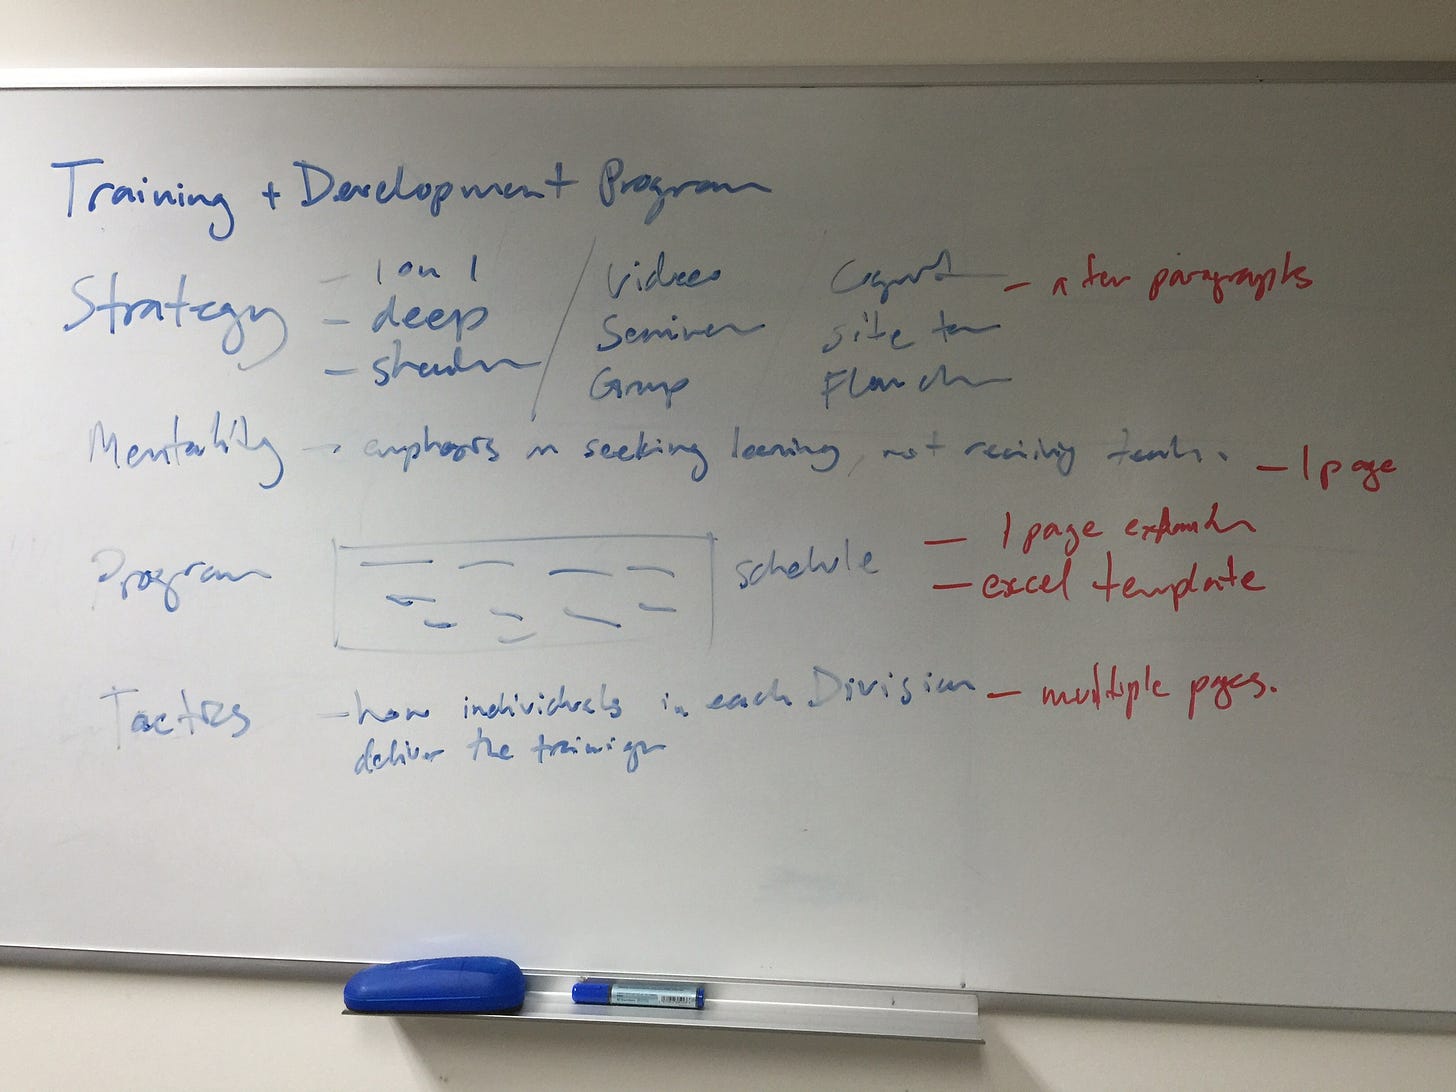 Training + Development Program
Strategy
- 1 on 1
- deep
-
Videos
Seminar
Group
site
- a few paragraphs
Mentality → emphasis on seeking learning, not receiving - 1 page
Program
schedule
- 1 page
- excel template
Tactics - how individuals in each Division - multiple pages.
deliver the